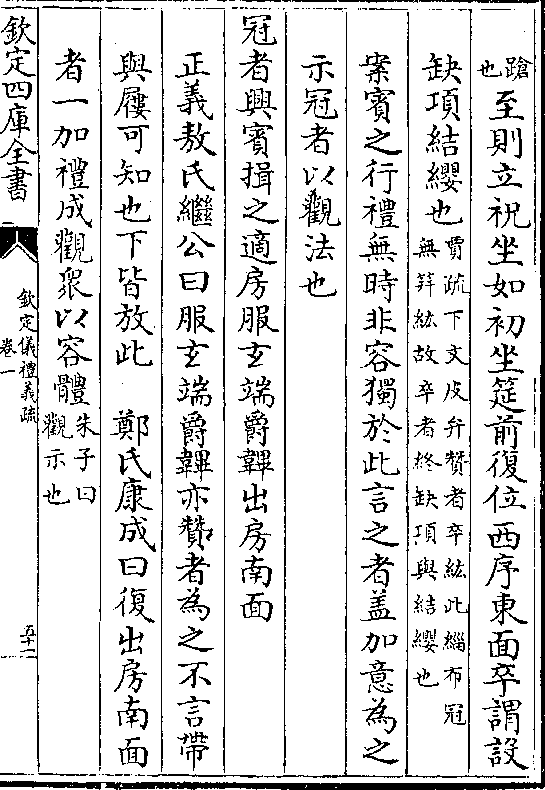 蹌也至則立祝坐如初坐筵前復位西序東面卒謂設
缺項結纓也賈疏下文皮弁贊者卒紘此緇布冠無笄紘故卒者終缺項與結纓也
案賓之行禮無時非容獨於此言之者盖加意為之
示冠者以觀法也
冠者興賓揖之適房服玄端爵韠出房南面
正義敖氏繼公曰服玄端爵韠亦贊者為之不言帶
與屨可知也下皆放此　鄭氏康成曰復出房南面
者一加禮成觀衆以容體朱子曰觀示也
欽定四庫全書
欽定儀禮義疏
卷一
五十二